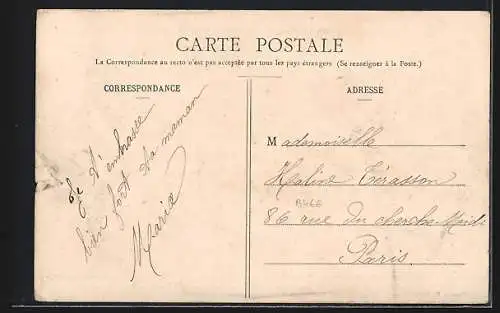 CARTE POSTALE
La Correspondance au recto n'est pas acceptée par tous les pays étrangers (Se renseigner à la Poste.)
CORRESPONDANCE
Je t'embrasse
bien fort ta maman
Maria
ADRESSE
Mademoiselle
Térasson
86 rue du cherche Midi
Paris